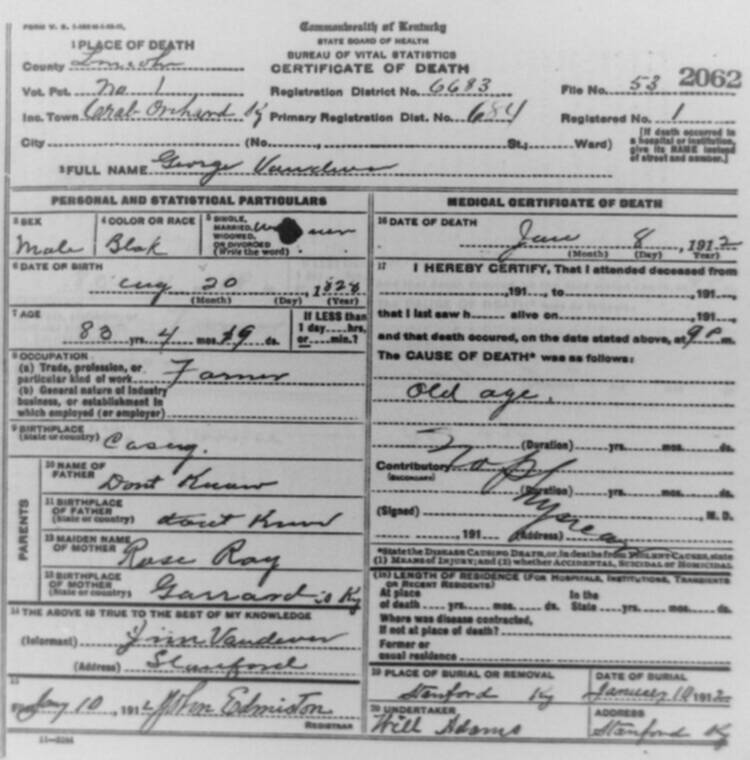 Commonwealth of Kentucky
STATE BOARD OF HEALTH
BUREAU OF VITAL STATISTICS
CERTIFICATE OF DEATH
1 PLACE OF DEATH
County Lincoln
Vot. Pct. No 1
Registration District No. 6683
File No. 53 2062
Inc. Town Crab Orchard Ky
Primary Registration Dist. No. 684
Registered No. 1
City (No. St.; Ward)
[If death occurred in a hospital or institution, give its NAME instead of street and number.]
2 FULL NAME George Vandever
PERSONAL AND STATISTICAL PARTICULARS
3 SEX
Male
4 COLOR OR RACE
Blak
5 SINGLE, MARRIED, WIDOWED, OR DIVORCED
(Write the word)
6 DATE OF BIRTH
Aug 20, 1828
(Month) (Day) (Year)
7 AGE
83 yrs. 4 mos. 19 ds.
If LESS than
1 day....hrs.
or....min.?
8 OCCUPATION
(a) Trade, profession, or
particular kind of work Farmer
(b) General nature of industry
business, or establishment in
which employed (or employer)
9 BIRTHPLACE
(State or country) Casey.
PARENTS
10 NAME OF
FATHER Dont Know
11 BIRTHPLACE
OF FATHER
(State or country) dont Know
12 MAIDEN NAME
OF MOTHER Rose Ray
13 BIRTHPLACE
OF MOTHER
(State or country) Garrard Ky
14 THE ABOVE IS TRUE TO THE BEST OF MY KNOWLEDGE
(Informant) Jim Vandever
(Address) Stanford
15
Jany 10, 1912 John Edmiston
REGISTRAR
MEDICAL CERTIFICATE OF DEATH
16 DATE OF DEATH
Jan 8, 1912
(Month) (Day) Year
17 I HEREBY CERTIFY, That I attended deceased from
,191 , to ,191 ,
that I last saw h alive on ,191 ,
and that death occured, on the date stated above, at 9 P m.
The CAUSE OF DEATH* was as follows:
Old age.
(Duration) yrs. mos. ds.
Contributory No
(SECONDARY)
(Duration) yrs. mos. ds.
(Signed) M. D.
, 191 (Address)
*State the DISEASE CAUSING DEATH, or, in deaths from VIOLENT CAUSES, state
(1) MEANS OF INJURY; and (2) whether ACCIDENTAL, SUICIDAL or HOMICIDAL
18 LENGTH OF RESIDENCE (FOR HOSPITALS, INSTITUTIONS, TRANSIENTS
OR RECENT RESIDENTS)
At place In the
of death yrs. mos. ds. State yrs. mos. ds.
Where was disease contracted,
if not at place of death?
Former or
usual residence
19 PLACE OF BURIAL OR REMOVAL
Stanford Ky
DATE OF BURIAL
January 10 1912
20 UNDERTAKER
Will Adams
ADDRESS
Stanford Ky
11—3244